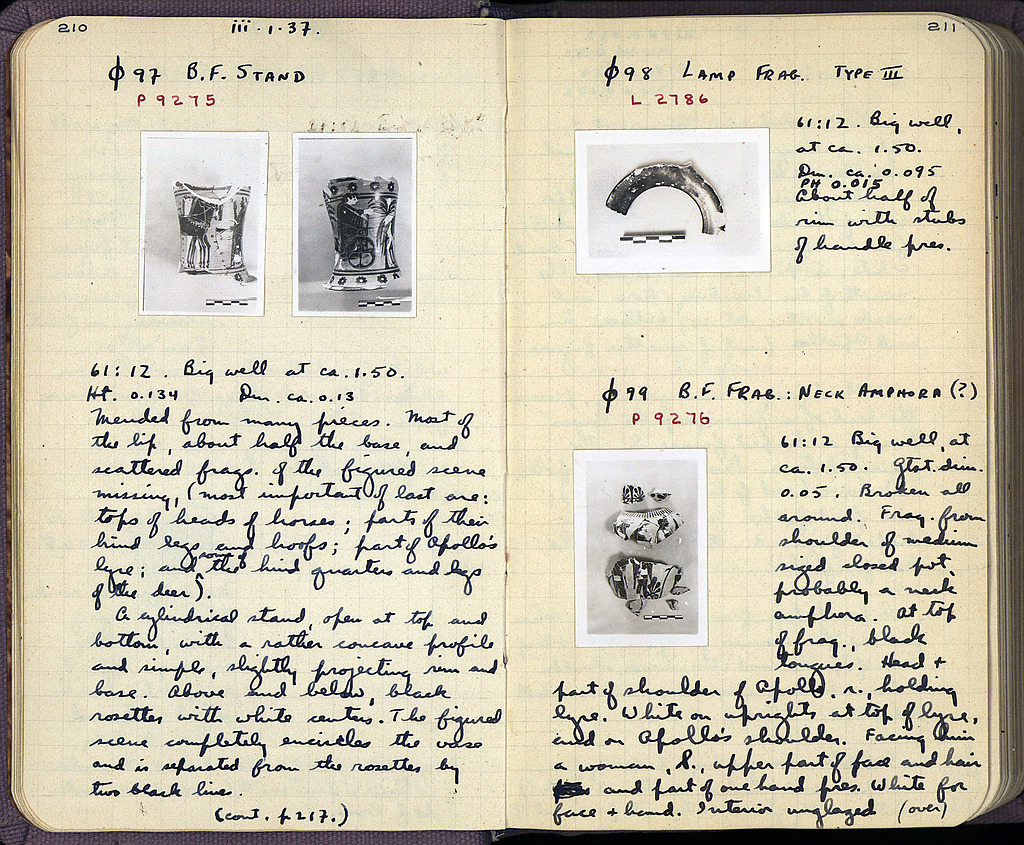 210
iii·1·37.
φ97 B.F. STAND
P 9275
61:12. Big well at ca. 1.50.
Ht. 0.134 Dm. ca. 0.13
Mended from many pieces. Most of
the lip, about half the base, and
scattered frags. of the figured scene
missing, (most important of last are:
tops of heads of horses; parts of their
hind legs and hoofs; part of Apollo's
lyre; and some of the hind quarters and legs
of the deer).
A cylindrical stand, open at top and
bottom, with a rather concave profile
and simple, slightly projecting rim and
base. Above and below, black
rosettes with white centers. The figured
scene completely encircles the vase
and is separated from the rosettes by
two black lines.
(cont. p 217.)
211
φ98 LAMP FRAG. TYPE III
L 2786
61:12. Big well,
at ca. 1.50.
Dm. ca. 0.095
PH 0.015
About half of
rim with stubs
of handle pres.
φ99 B.F. FRAG.: NECK AMPHORA (?)
P 9276
61:12 Big well, at
ca. 1.50. Gtst. dim.
0.05. Broken all
around. Frag. from
shoulder of medium
sized closed pot,
probably a neck
amphora. At top
of frag., black
tongues. Head +
part of shoulder of Apollo, r., holding
lyre. White on uprights at top of lyre,
and on Apollo's shoulder. Facing him
a woman, l., upper part of face and hair
and part of one hand pres. White for
face + hand. Interior unglazed (over)